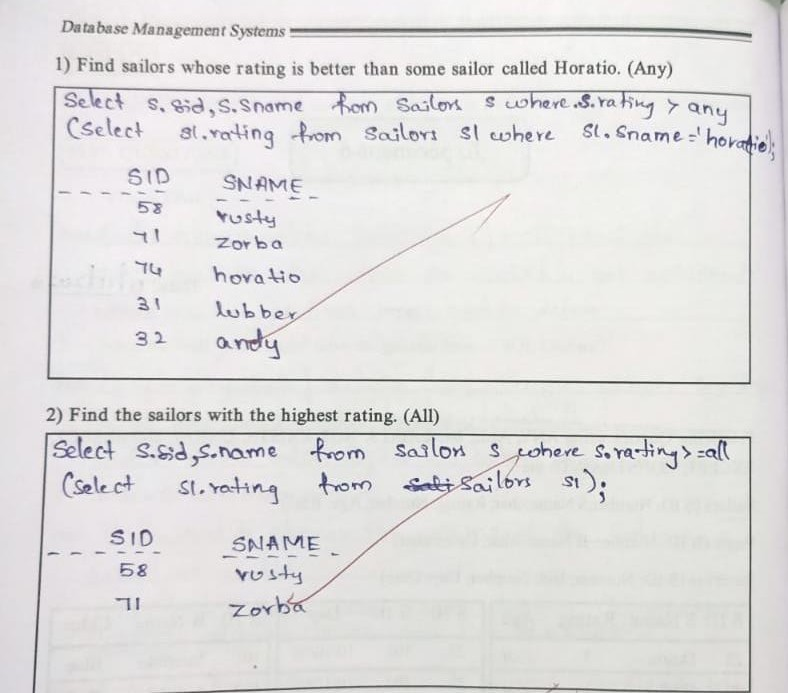 Database Management Systems
1) Find sailors whose rating is better than some sailor called Horatio. (Any)
Select S.Sid,S.Sname from Sailors s where S.rating > any
(Select s1.rating from Sailors S1 where S1.Sname='horatio');
SID SNAME
58 rusty
71 zorba
74 horatio
31 lubber
32 andy
2) Find the sailors with the highest rating. (All)
Select S.Sid,S.name from sailors s where S.rating>=all
(Select S1.rating from Sailors S1);
SID SNAME
58 rusty
71 zorba